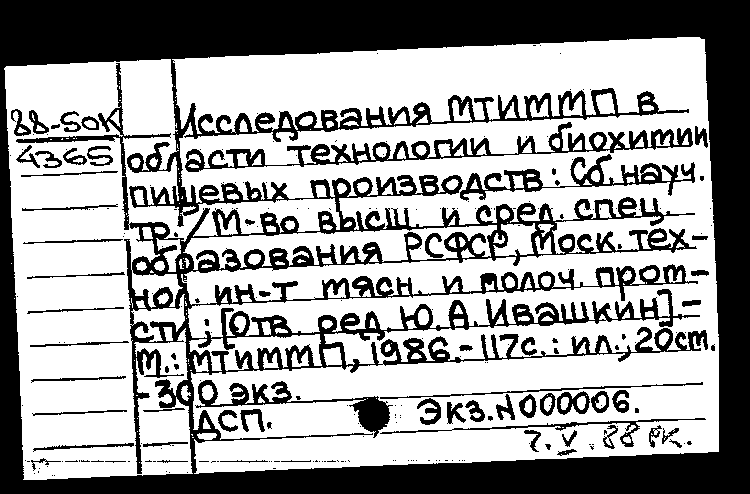 88-50К
4365
Исследования МТИММП в
области технологии и биохимии
пищевых производств: Сб. науч.
тр. / М-во высш. и сред. спец.
образования РСФСР, Моск. тех-
нол. ин-т мясн. и молоч. пром-
сти; [Отв. ред. Ю.А. Ивашкин].-
М.: МТИММП, 1986.- 117с.: ил.; 20см.
- 300 экз.
ДСП. Экз.N000006.
7.V.88 РК.